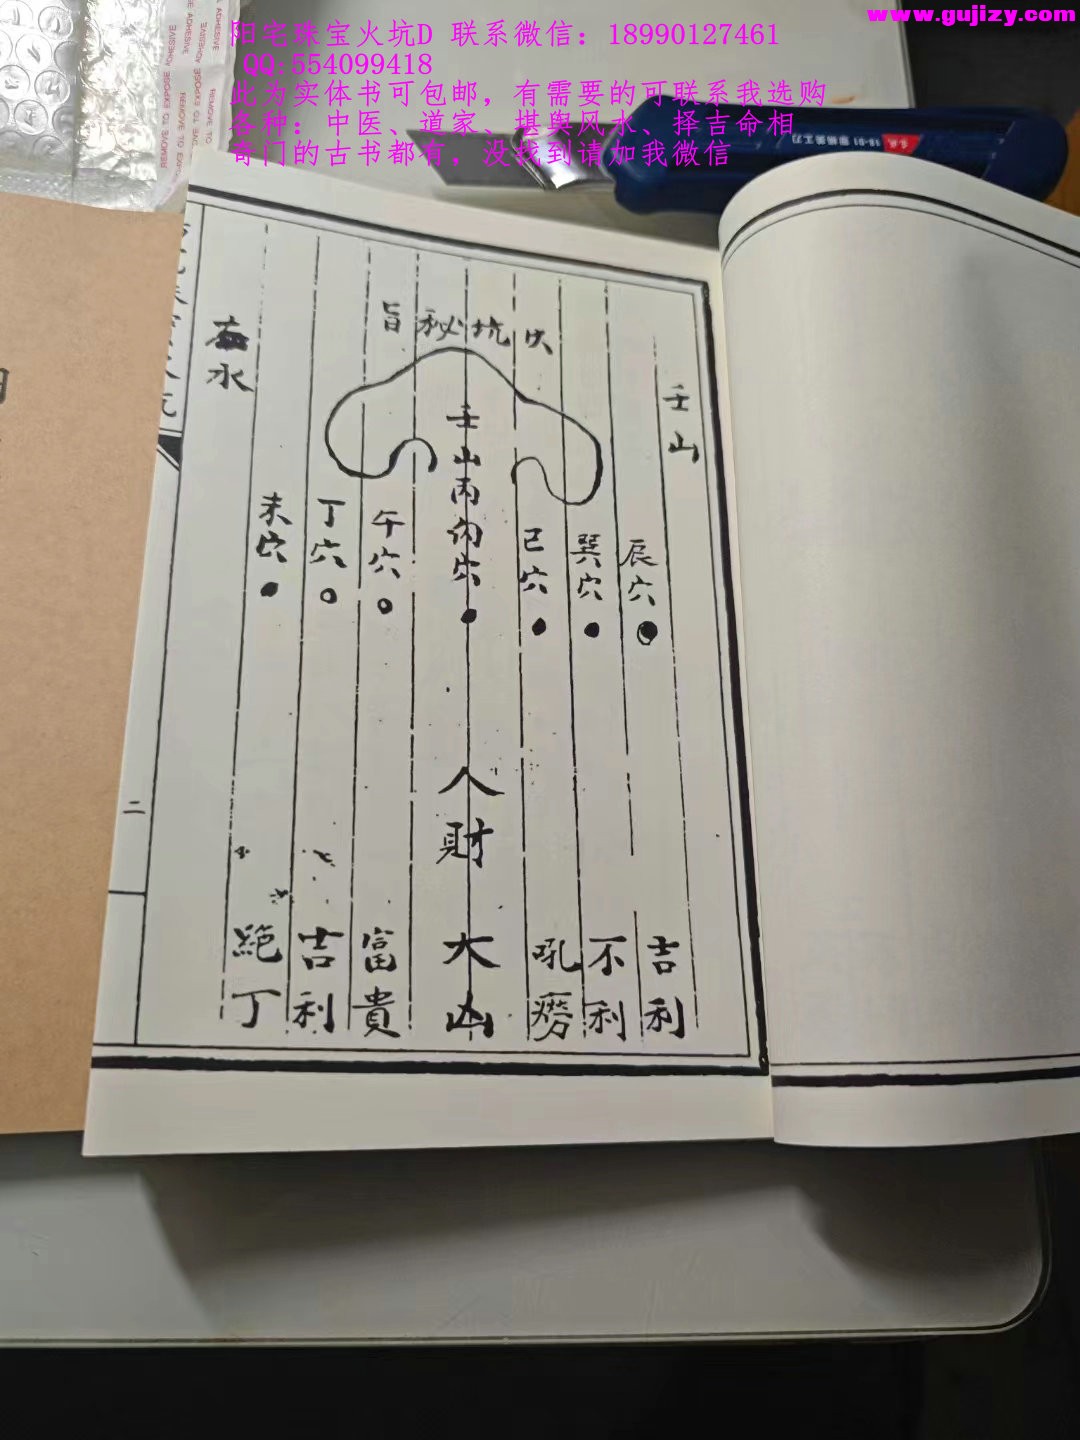 www.gujizy.com
阳宅珠宝火坑D 联系微信：18990127461
QQ:554099418
此为实体书可包邮，有需要的可联系我选购
各种：中医、道家、堪舆风水、择吉命相
奇门的古书都有，没找到请加我微信
壬山
火坑秘旨
壬山丙向穴
辰穴
巽穴
巳穴
午穴
丁穴
未穴
水
人財
大凶
吉利
不利
吼癆
富貴
吉利
絶丁
二